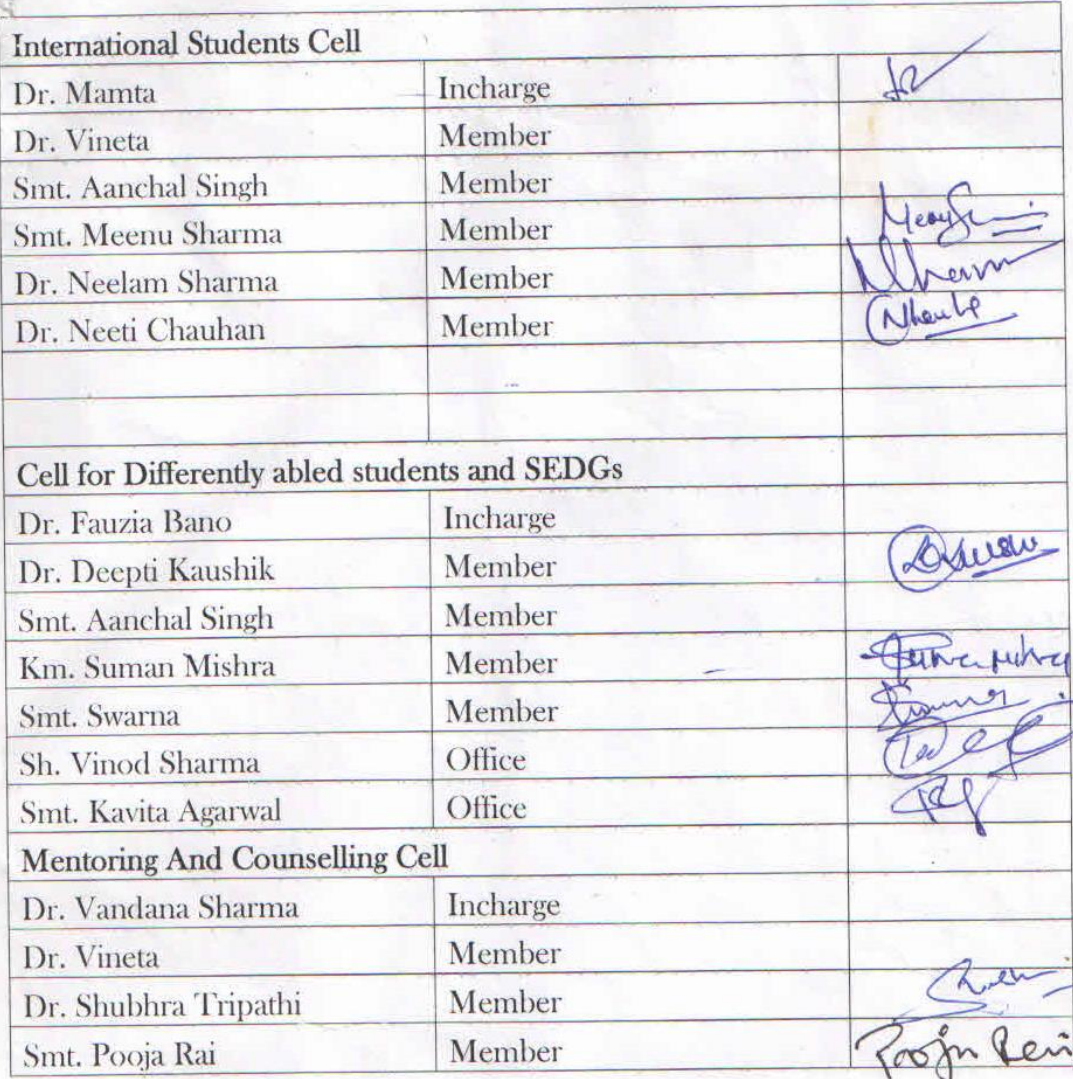 International Students Cell
Dr. Mamta Incharge
Dr. Vineta Member
Smt. Aanchal Singh Member
Smt. Meenu Sharma Member
Dr. Neelam Sharma Member
Dr. Neeti Chauhan Member
Cell for Differently abled students and SEDGs
Dr. Fauzia Bano Incharge
Dr. Deepti Kaushik Member
Smt. Aanchal Singh Member
Km. Suman Mishra Member
Smt. Swarna Member
Sh. Vinod Sharma Office
Smt. Kavita Agarwal Office
Mentoring And Counselling Cell
Dr. Vandana Sharma Incharge
Dr. Vineta Member
Dr. Shubhra Tripathi Member
Smt. Pooja Rai Member Pooja Rai